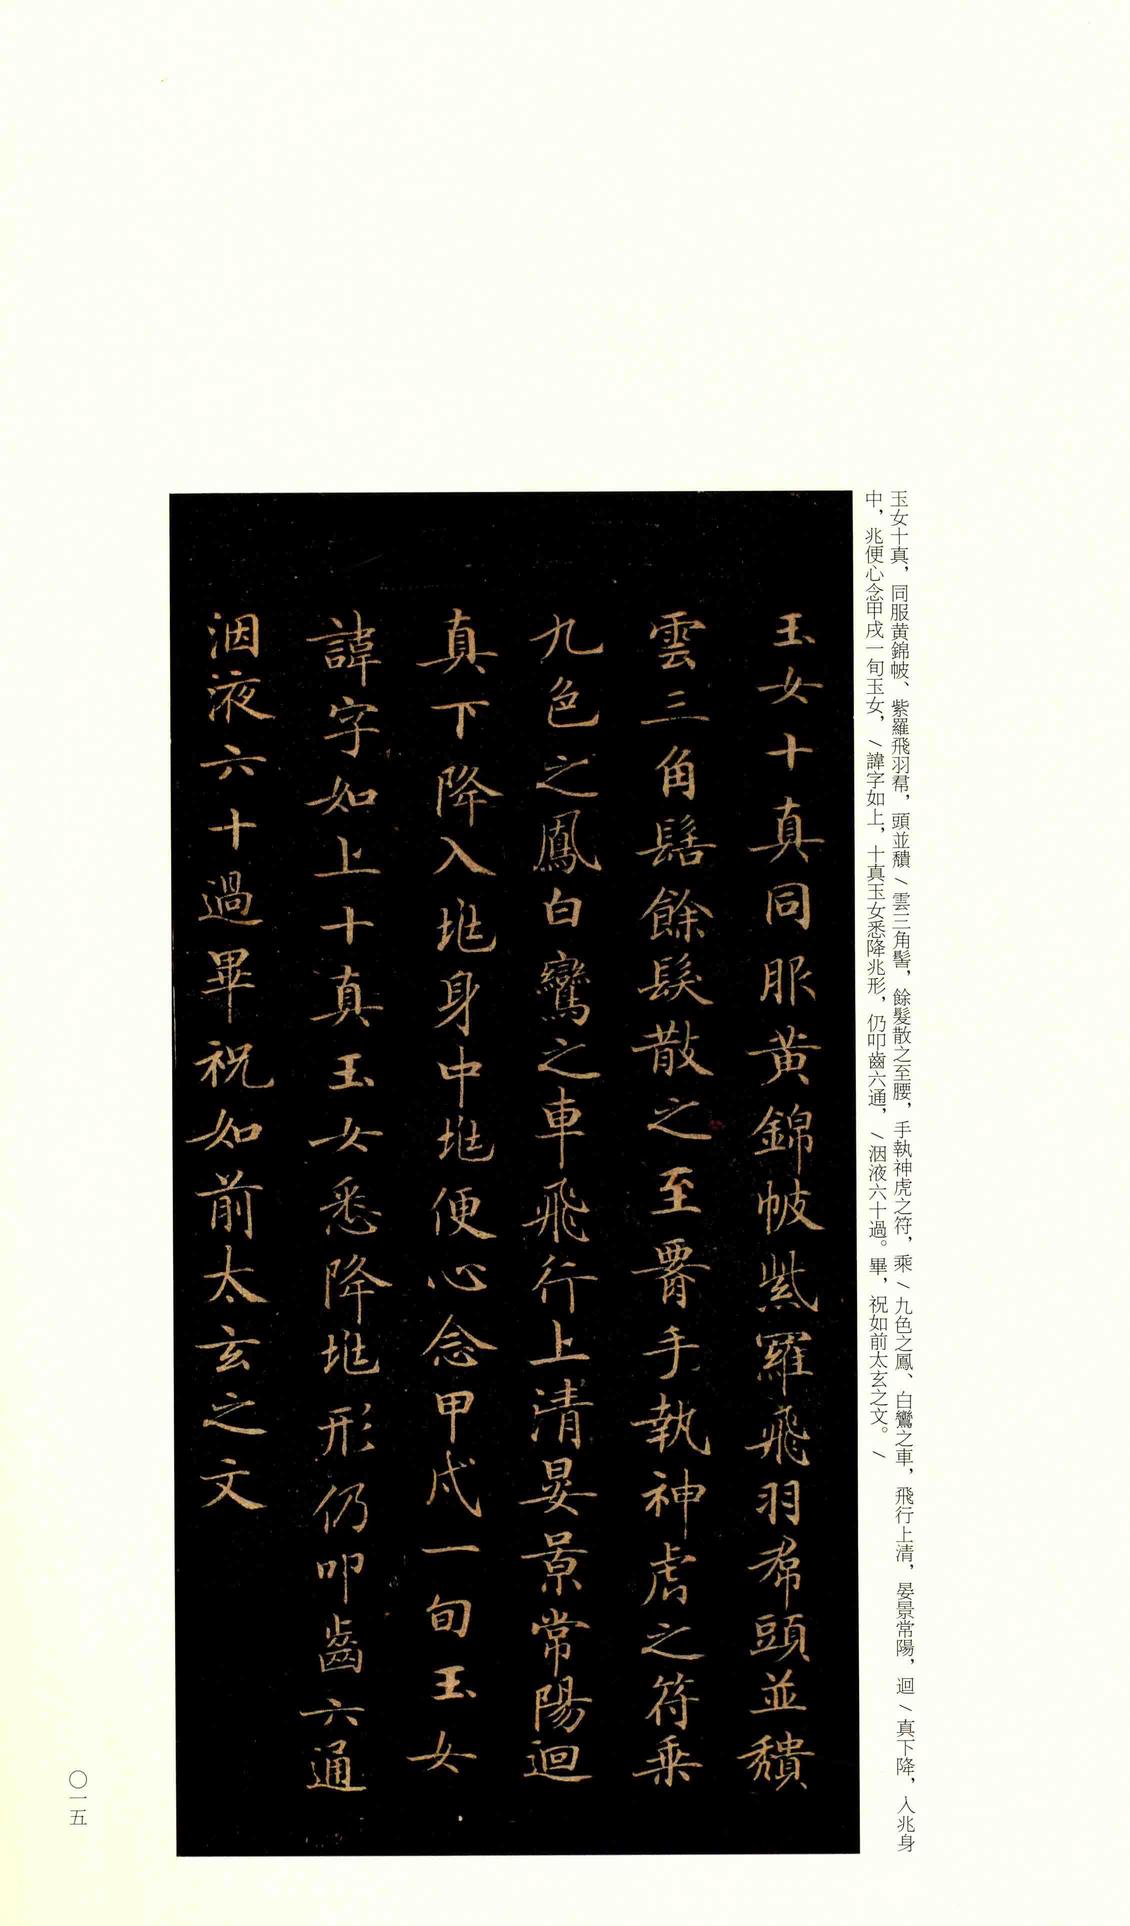 玉女十真，同服黄錦帔、紫羅飛羽帬，頭並穨/雲三角髻，餘髮散之至腰，手執神虎之符，乘/九色之鳳、白鸞之車，飛行上清，晏景常陽，迴/真下降，入兆身
中，兆便心念甲戌一旬玉女，/諱字如上，十真玉女悉降兆形，仍叩齒六通，/洇液六十過。畢，祝如前太玄之文。/
玉女十真同服黄錦帔紫羅飛羽帬頭並穨
雲三角髻餘髮散之至腰手執神虎之符乘
九色之鳳白鸞之車飛行上清晏景常陽迴
真下降入兆身中兆便心念甲戌一旬玉女
諱字如上十真玉女悉降兆形仍叩齒六通
洇液六十過畢祝如前太玄之文
〇一五